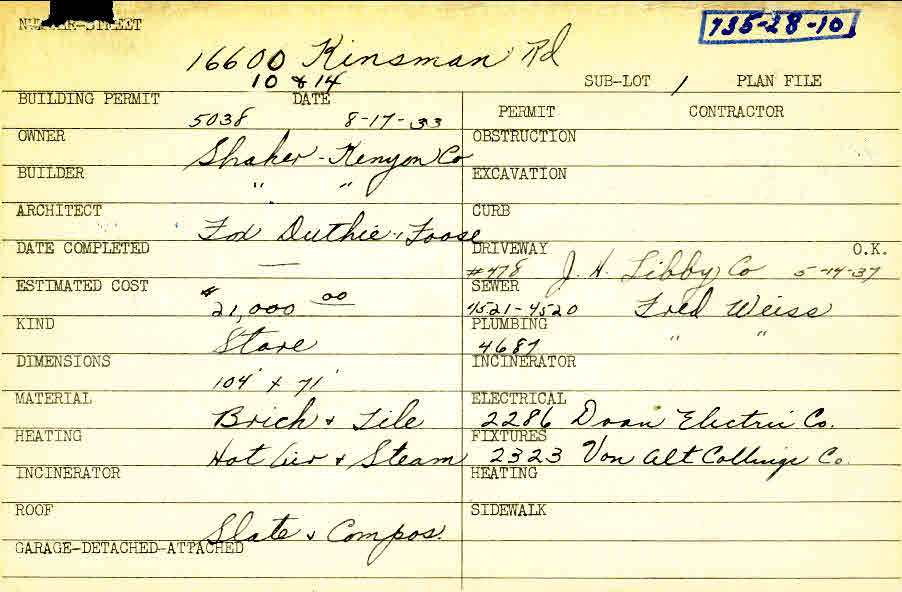 NUMBER-STREET
735-28-10
16600 Kinsman Rd
10 & 14
SUB-LOT / PLAN FILE
BUILDING PERMIT DATE
5038 8-17-33
PERMIT CONTRACTOR
OWNER
Shaker-Kenyon Co
OBSTRUCTION
BUILDER
" "
EXCAVATION
ARCHITECT
Fox Duthie & Foose
CURB
DATE COMPLETED
—
DRIVEWAY O.K.
#478 J. H. Libby Co 5-14-37
ESTIMATED COST
$21,000 00
SEWER
4521-4520 Fred Weiss
KIND
Store
PLUMBING
4687 " "
DIMENSIONS
104' x 71'
INCINERATOR
MATERIAL
Brick & Tile
ELECTRICAL
2286 Doan Electric Co.
HEATING
Hot Air & Steam
FIXTURES
2323 Von Alt Co.
INCINERATOR
HEATING
ROOF
Slate & Compos.
SIDEWALK
GARAGE-DETACHED-ATTACHED